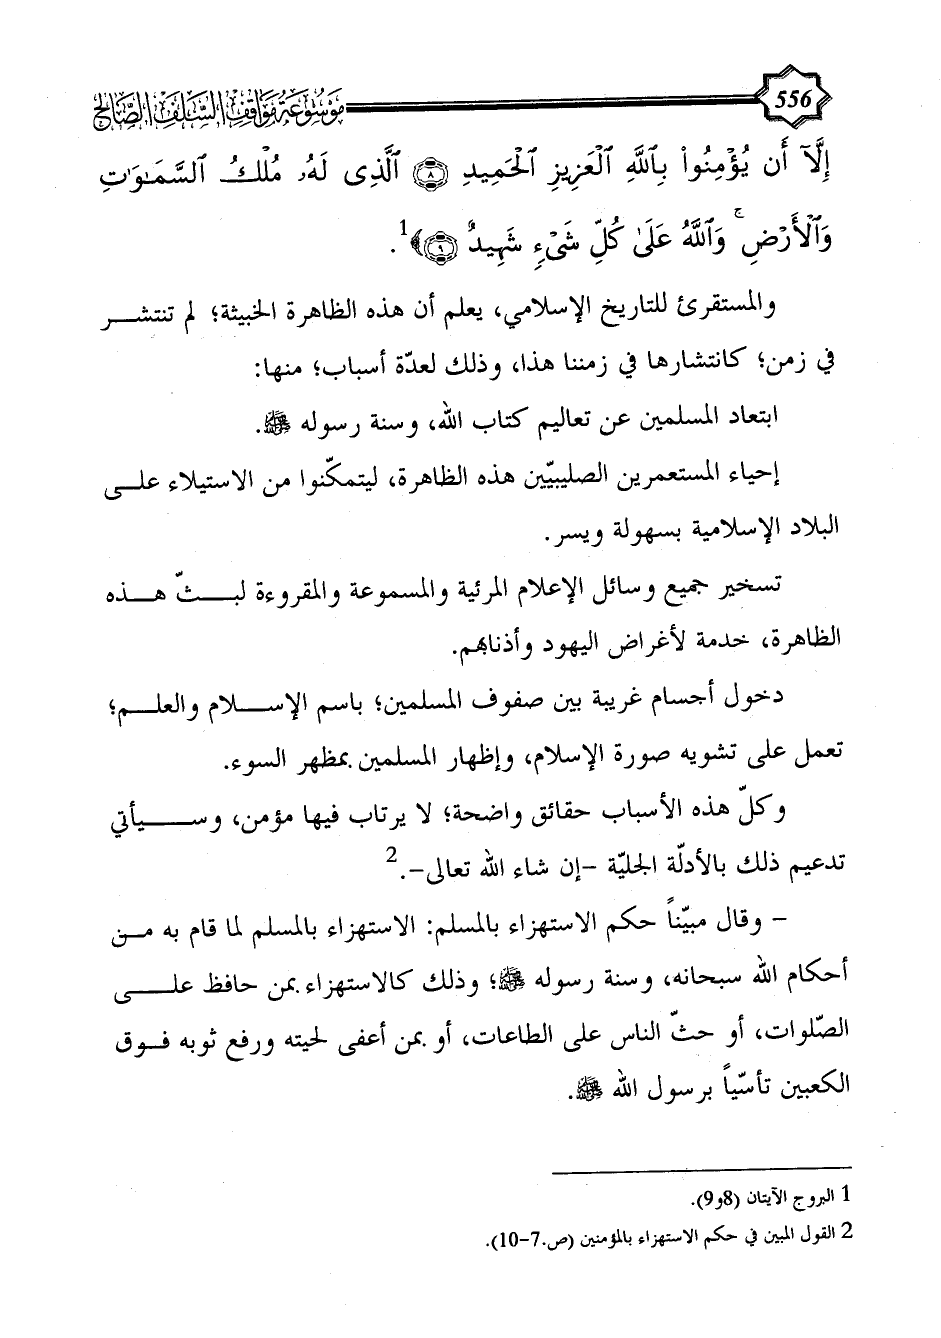 556
موسوعة مواقف السلف الصالح
إِلَّآ أَن يُؤْمِنُوا۟ بِٱللَّهِ ٱلْعَزِيزِ ٱلْحَمِيدِ ۝٨ ٱلَّذِى لَهُۥ مُلْكُ ٱلسَّمَـٰوَٰتِ
وَٱلْأَرْضِ ۚ وَٱللَّهُ عَلَىٰ كُلِّ شَىْءٍ شَهِيدٌ ۝٩﴾1.
والمستقرئ للتاريخ الإسلامي، يعلم أن هذه الظاهرة الخبيثة؛ لم تنتشر
في زمن؛ كانتشارها في زمننا هذا، وذلك لعدّة أسباب؛ منها:
ابتعاد المسلمين عن تعاليم كتاب الله، وسنة رسوله ﷺ.
إحياء المستعمرين الصليبيّين هذه الظاهرة، ليتمكّنوا من الاستيلاء على
البلاد الإسلامية بسهولة ويسر.
تسخير جميع وسائل الإعلام المرئية والمسموعة والمقروءة لبثّ هذه
الظاهرة، خدمة لأغراض اليهود وأذنابهم.
دخول أجسام غريبة بين صفوف المسلمين؛ باسم الإسلام والعلم؛
تعمل على تشويه صورة الإسلام، وإظهار المسلمين بمظهر السوء.
وكلّ هذه الأسباب حقائق واضحة؛ لا يرتاب فيها مؤمن، وسيأتي
تدعيم ذلك بالأدلّة الجليّة -إن شاء الله تعالى-.2
- وقال مبيّناً حكم الاستهزاء بالمسلم: الاستهزاء بالمسلم لما قام به من
أحكام الله سبحانه، وسنة رسوله ﷺ؛ وذلك كالاستهزاء بمن حافظ على
الصّلوات، أو حثّ الناس على الطاعات، أو بمن أعفى لحيته ورفع ثوبه فوق
الكعبين تأسّياً برسول الله ﷺ.
1 البروج الآيتان (8و9).
2 القول المبين في حكم الاستهزاء بالمؤمنين (ص.7-10).